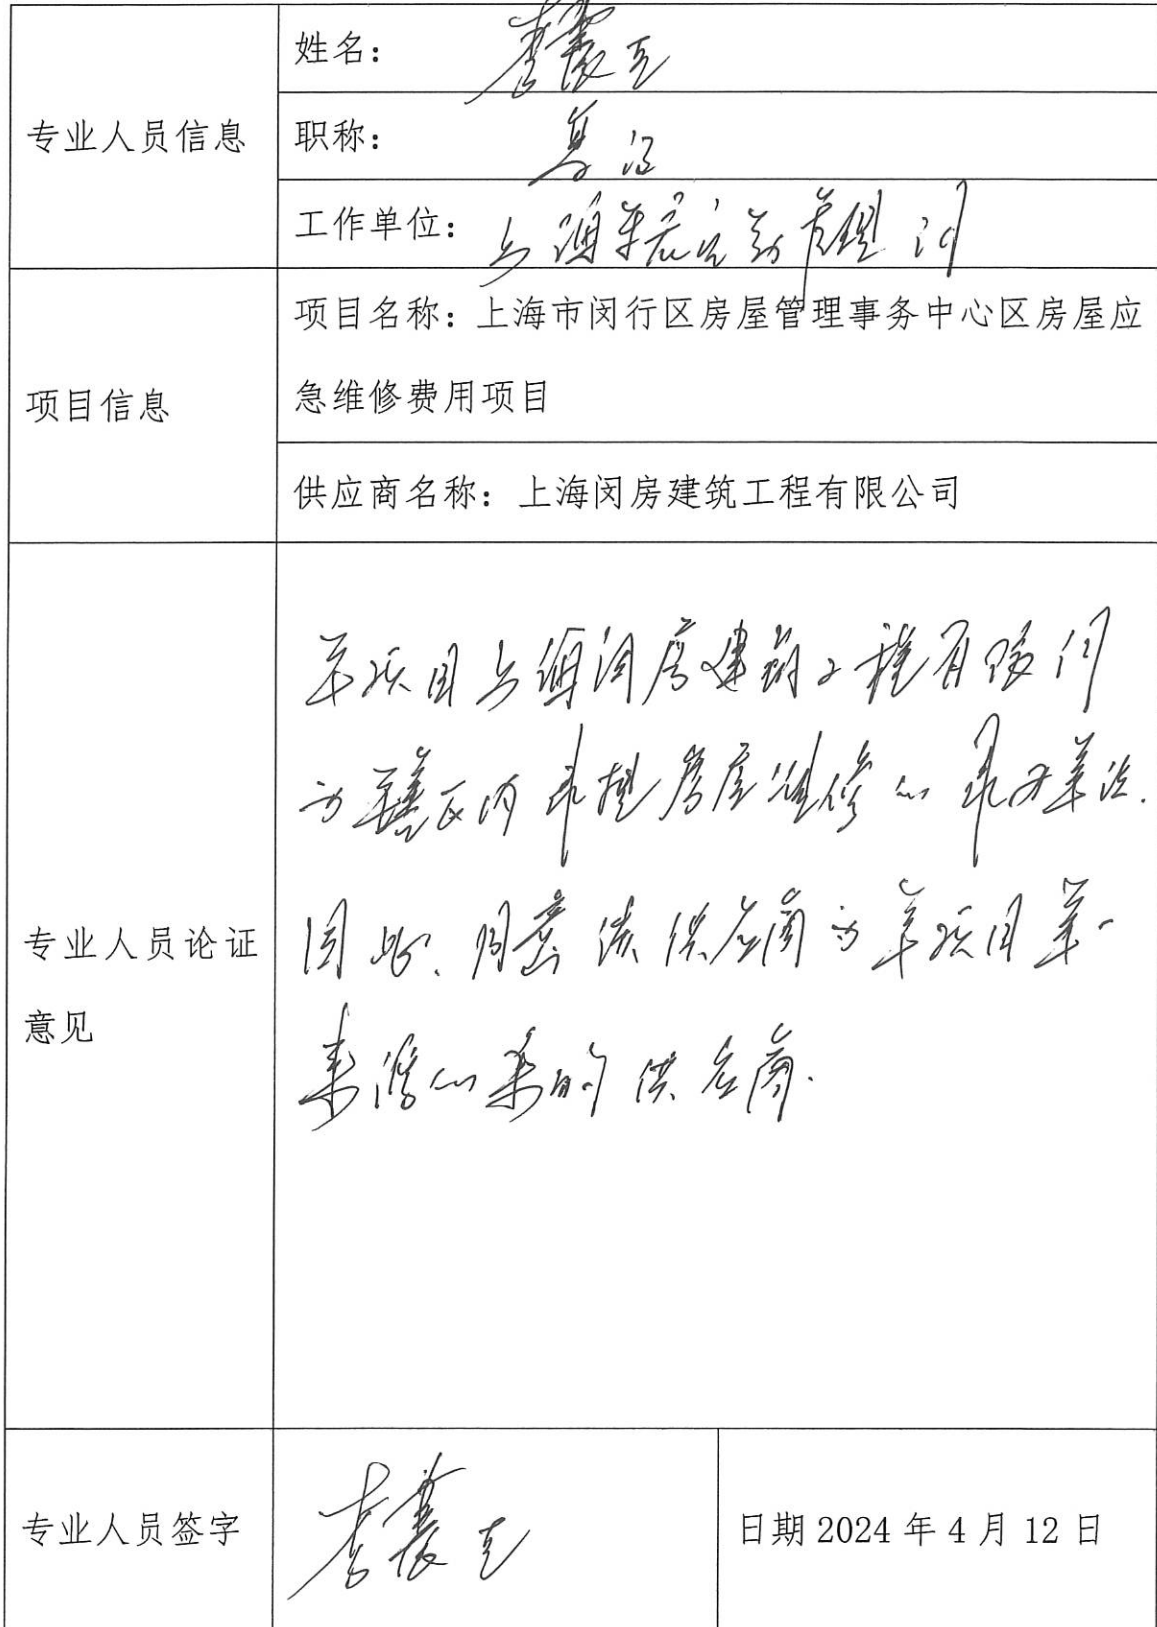 专业人员信息
姓名：
职称：高工
工作单位：上海
项目信息
项目名称：上海市闵行区房屋管理事务中心区房屋应
急维修费用项目
供应商名称：上海闵房建筑工程有限公司
专业人员论证
意见
本项目上海闵房建筑工程有限公司
为辖区内承担房屋维修的承办单位.
因此.同意该供应商为本项目单一
来源的采购供应商.
专业人员签字
日期 2024 年 4 月 12 日